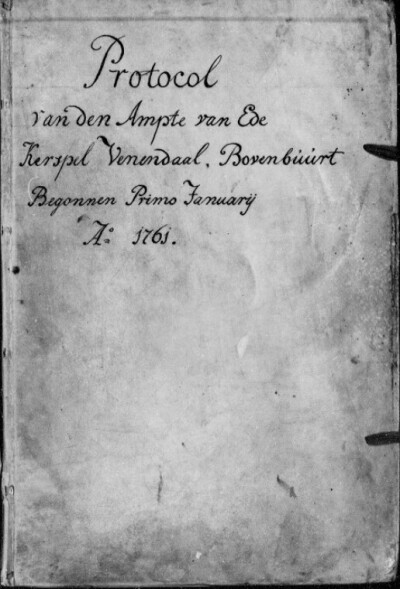 Protocol
van den Ampte van Ede
Kerspel Venendaal, Bovenbúúrt
Begonnen Primo Januarÿ
Aº: 1761.